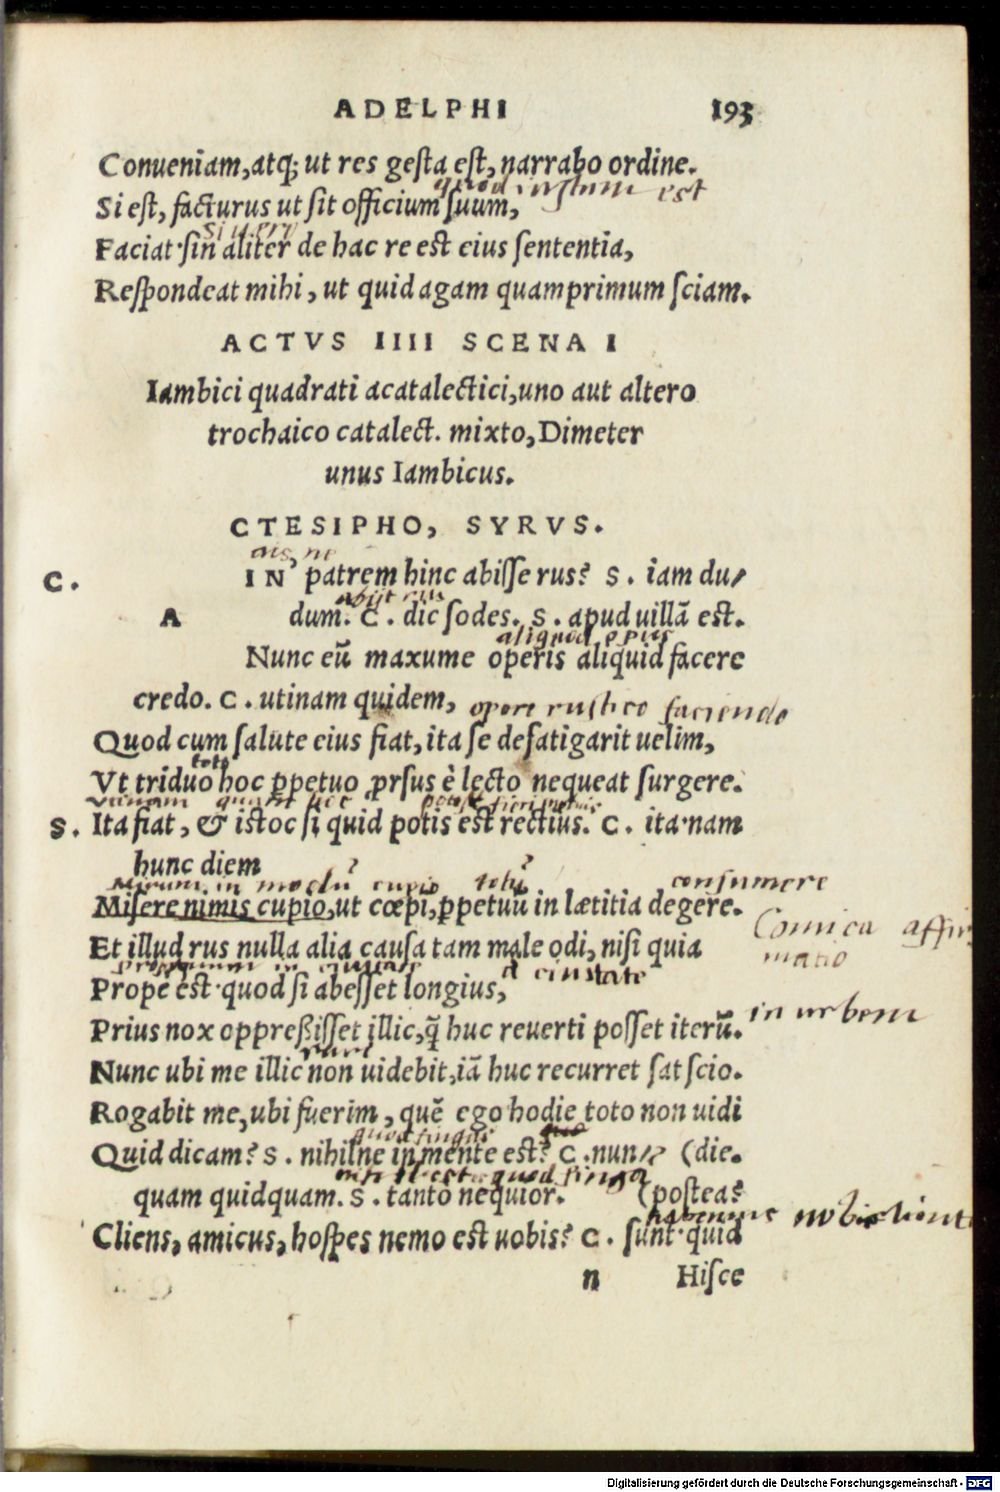 ADELPHI 193
Conueniam, atq; ut res gesta est, narrabo ordine.
est
Si est, facturus ut sit officium suum,
Faciat·sin aliter de hac re est eius sententia,
Respondeat mihi, ut quid agam quamprimum sciam.
ACTVS IIII SCENA I
Iambici quadrati acatalectici, uno aut altero
trochaico catalect. mixto, Dimeter
unus Iambicus.
CTESIPHO, SYRVS.
ais ne
C. IN' patrem hinc abisse rus? S. iam du/
abijt rus
A dum. C. dic sodes. S. apud uillā est.
aliquod opus
Nunc eū maxume operis aliquid facere
credo. C. utinam quidem, opere rustico faciendo
Quod cum salute eius fiat, ita se defatigarit uelim,
toto
Vt triduo hoc ꝑpetuo ꝓrsus è lecto nequeat surgere.
utinam
S. Ita fiat, & istoc si quid potis est rectius. C. ita·nam
hunc diem
Mirum in modū cupio totū consumere
Misere nimis cupio, ut cœpi, ꝑpetuū in lætitia degere.
Comica affir
Et illud rus nulla alia causa tam male odi, nisi quia
matio
a ciuitate
Prope est·quod si abesset longius,
in urbem
Prius nox oppreßisset illic, q̄ huc reuerti posset iterū.
rure
Nunc ubi me illic non uidebit, iā huc recurret sat scio.
Rogabit me, ubi fuerim, quē ego hodie toto non uidi
quod fingas
Quid dicam? S. nihilne in mente est? C. nun/ (die.
quod finga
quam quidquam. S. tanto nequior. (postea?
habemus nobis client
Cliens, amicus, hospes nemo est uobis? C. sunt·quid
n Hisce
Digitalisierung gefördert durch die Deutsche Forschungsgemeinschaft - DFG